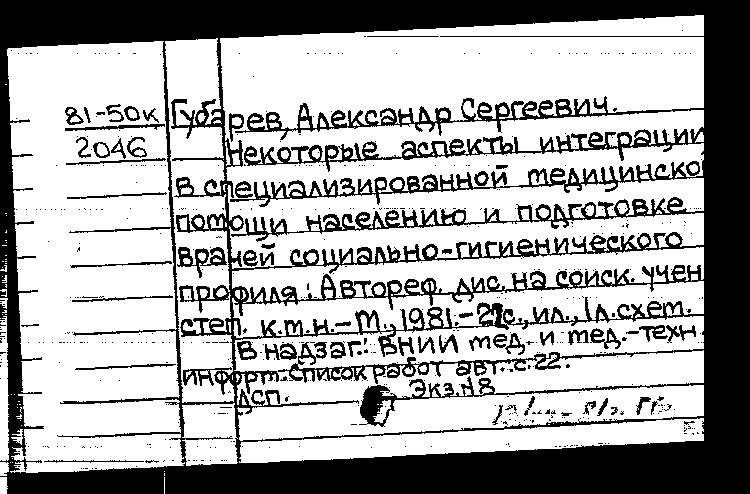 81-50к Губарев, Александр Сергеевич.
2046 Некоторые аспекты интеграции
в специализированной медицинской
помощи населению и подготовке
врачей социально-гигиенического
профиля: Автореф. дис. на соиск. учен
степ. к.м.н. – М., 1981. – 22с., ил., 1л.схем.
В надзаг.: ВНИИ мед. и мед.-техн.
информ. Список работ авт.: с.22.
ДСП. Экз.№8